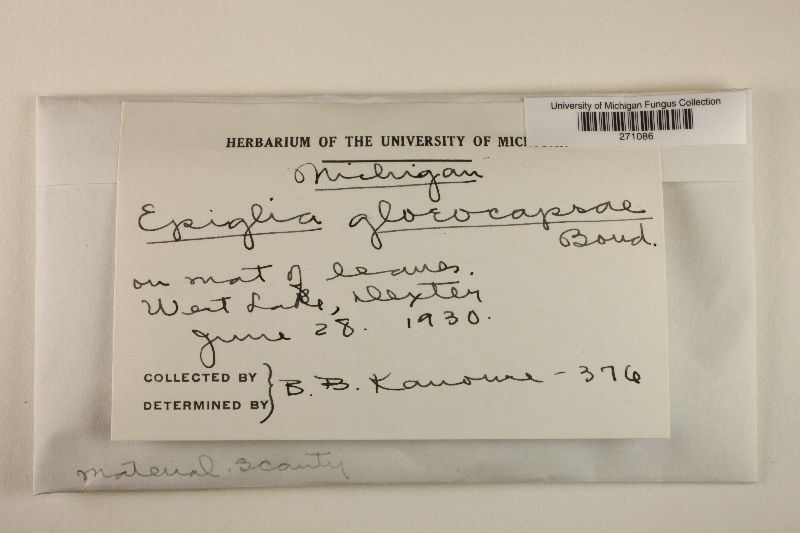 University of Michigan Fungus Collection
271086
HERBARIUM OF THE UNIVERSITY OF MICH
Michigan
Epiglia gloeocapsae
Boud.
on mat of leaves.
West Lake, Dexter
June 28. 1930.
COLLECTED BY
DETERMINED BY
B. B. Kanouse - 376
Material scanty